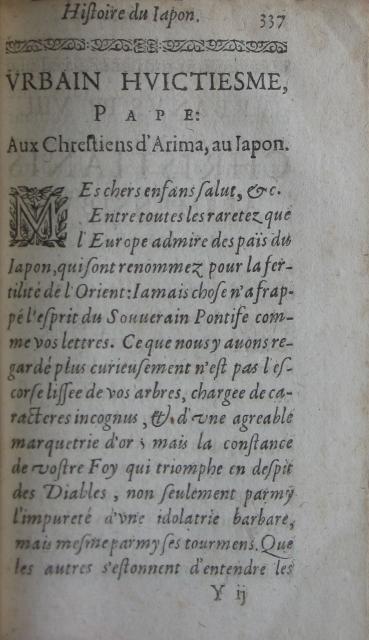 Histoire du Iapon. 337
VRBAIN HVICTIESME,
PAPE:
Aux Chrestiens d'Arima, au Iapon.
MEs chers enfans salut, &c.
Entre toutes les raretez que
l'Europe admire des païs du
Iapon, qui sont renommez pour la fer-
tilité de l'Orient: Iamais chose n'a frap-
pé l'esprit du Souuerain Pontife com-
me vos lettres. Ce que nous y auons re-
gardé plus curieusement n'est pas l'es-
corse lissee de vos arbres, chargee de ca-
racteres incognus, & d'vne agreable
marquetrie d'or; mais la constance
de vostre Foy qui triomphe en despit
des Diables, non seulement parmy
l'impureté d'vne idolatrie barbare,
mais mesme parmy ses tourmens. Que
les autres s'estonnent d'entendre les
Y ij